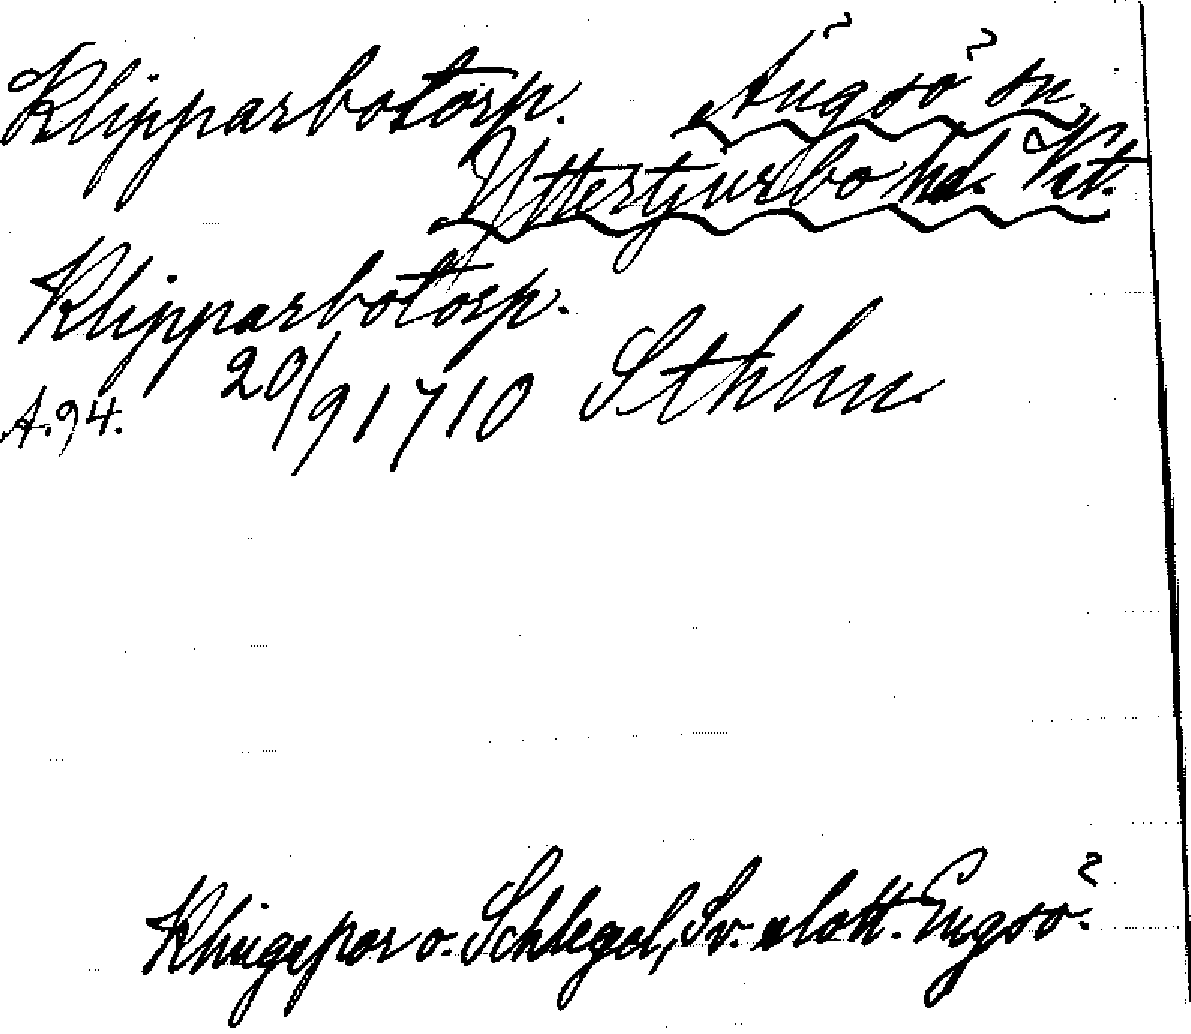 Klipparbotorp. Ängsö sn
Yttertjurbo hd. Vstm.
Klipparbotorp.
A.94. 20/9 1710 Sthlm.
Klingspor o. Schlegel, Sv. slott. Engsö.